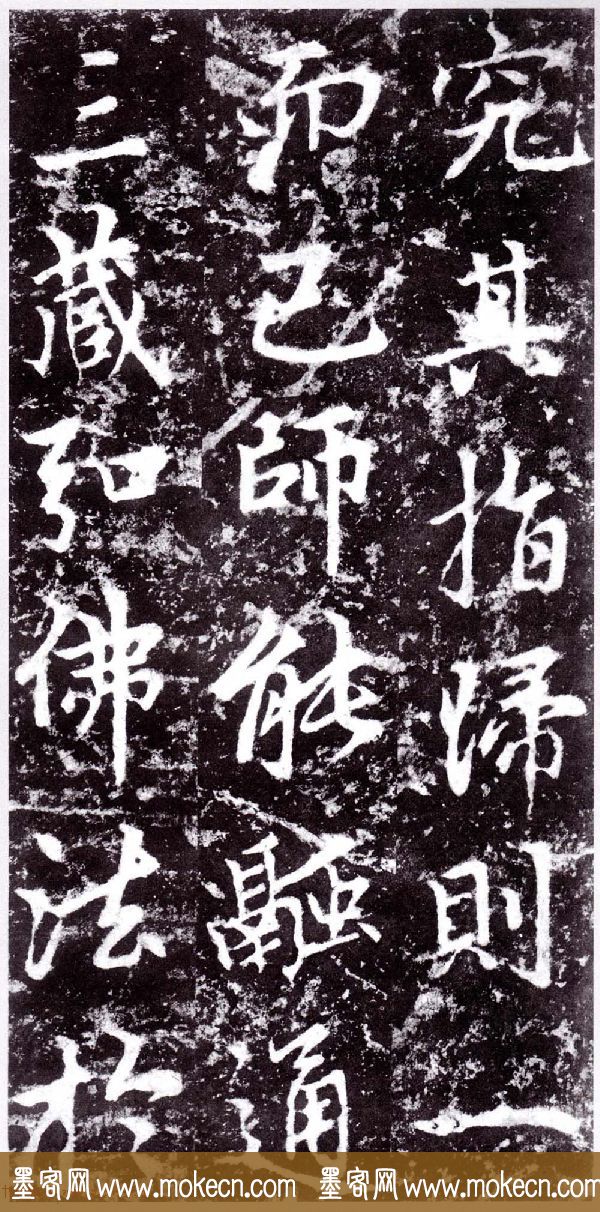 究其指歸則一
而已師能融通
三藏弘佛法於
墨客网 www.mokecn.com 墨客网 www.mokecn.com